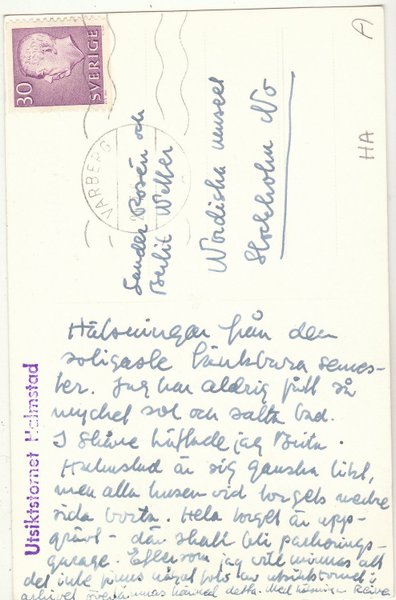 30
SVERIGE
VARBERG
A
HA
Sander Rosén och
Berlit
Nordiska museet
Stockholm No
Utsiktstornet Halmstad
Hälsningar från den
soligaste tänkbara semes-
ter. Jag har aldrig fått så
mycket sol och salta bad.
I Skåne träffade jag Brita.
Halmstad är sig ganska likt,
men alla husen vid torgets nedre
sida borta. Hela torget är upp-
grävt - där skall bli parkerings-
garage. Eftersom jag vill minnas att
det inte finns något foto av utsiktstornet i
arkivet överlämnas härmed detta. Med hälsningar